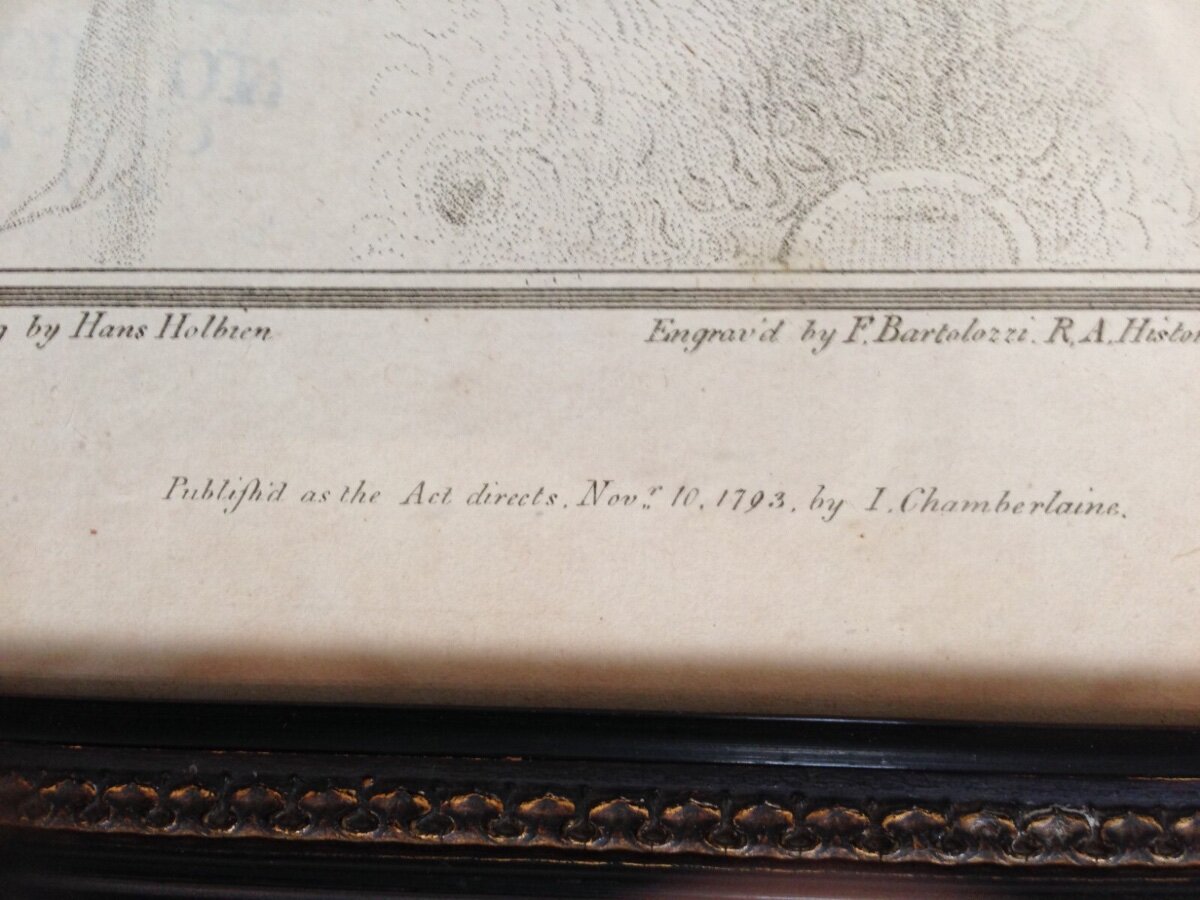 by Hans Holbien
Engrav'd by F. Bartolozzi. R.A. Histor
Publiſh'd as the Act directs, Novr. 10, 1793, by I. Chamberlaine.